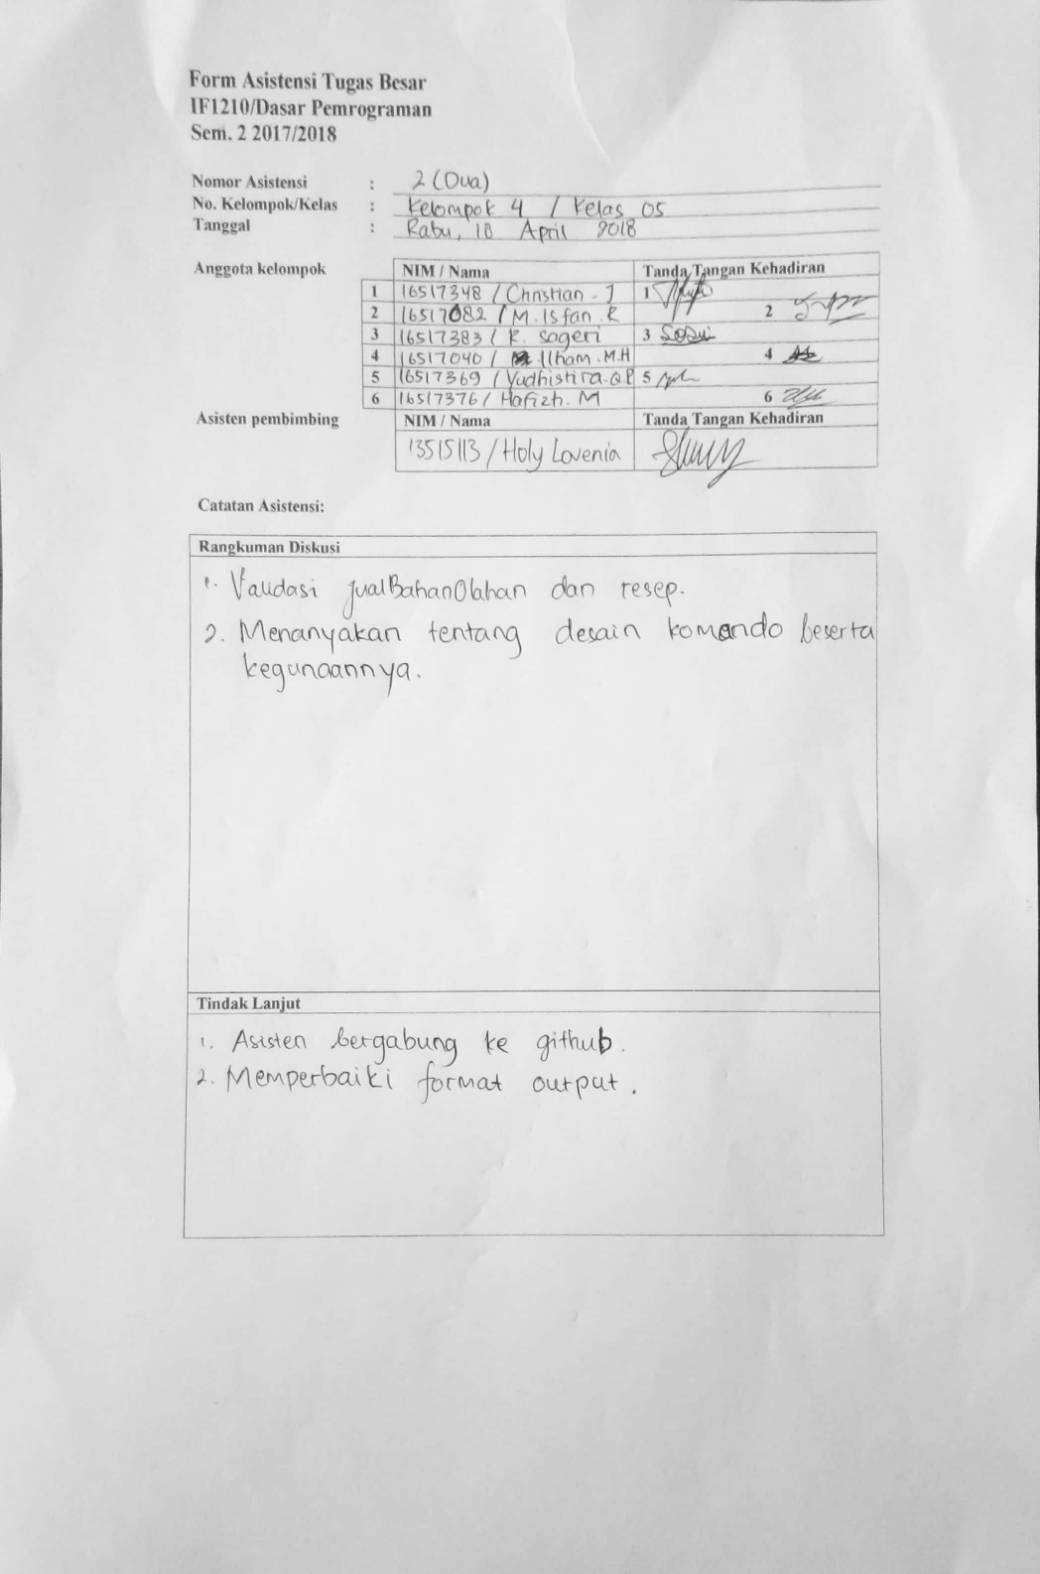 Form Asistensi Tugas Besar
IF1210/Dasar Pemrograman
Sem. 2 2017/2018
Nomor Asistensi : 2 (Dua)
No. Kelompok/Kelas : Kelompok 4 / Kelas 05
Tanggal : Rabu, 18 April 2018
Anggota kelompok NIM / Nama Tanda Tangan Kehadiran
1 16517348 / Christian . J 1
2 16517082 / M. Isfan . R 2
3 16517383 / K. Sageri 3
4 16517040 / Ilham . M.H 4
5 16517369 / Yudhistira . Q.P 5
6 16517376 / Hafizh . M 6
Asisten pembimbing NIM / Nama Tanda Tangan Kehadiran
13515113 / Holy Lovenia
Catatan Asistensi:
Rangkuman Diskusi
1. Validasi jualBahanOlahan dan resep.
2. Menanyakan tentang desain komando beserta
kegunaannya.
Tindak Lanjut
1. Asisten bergabung ke github.
2. Memperbaiki format output.